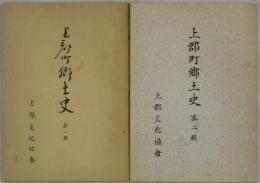 上郡町郷土史
第一輯
上郡文化協会
上郡町郷土史
第二輯
上郡文化協會